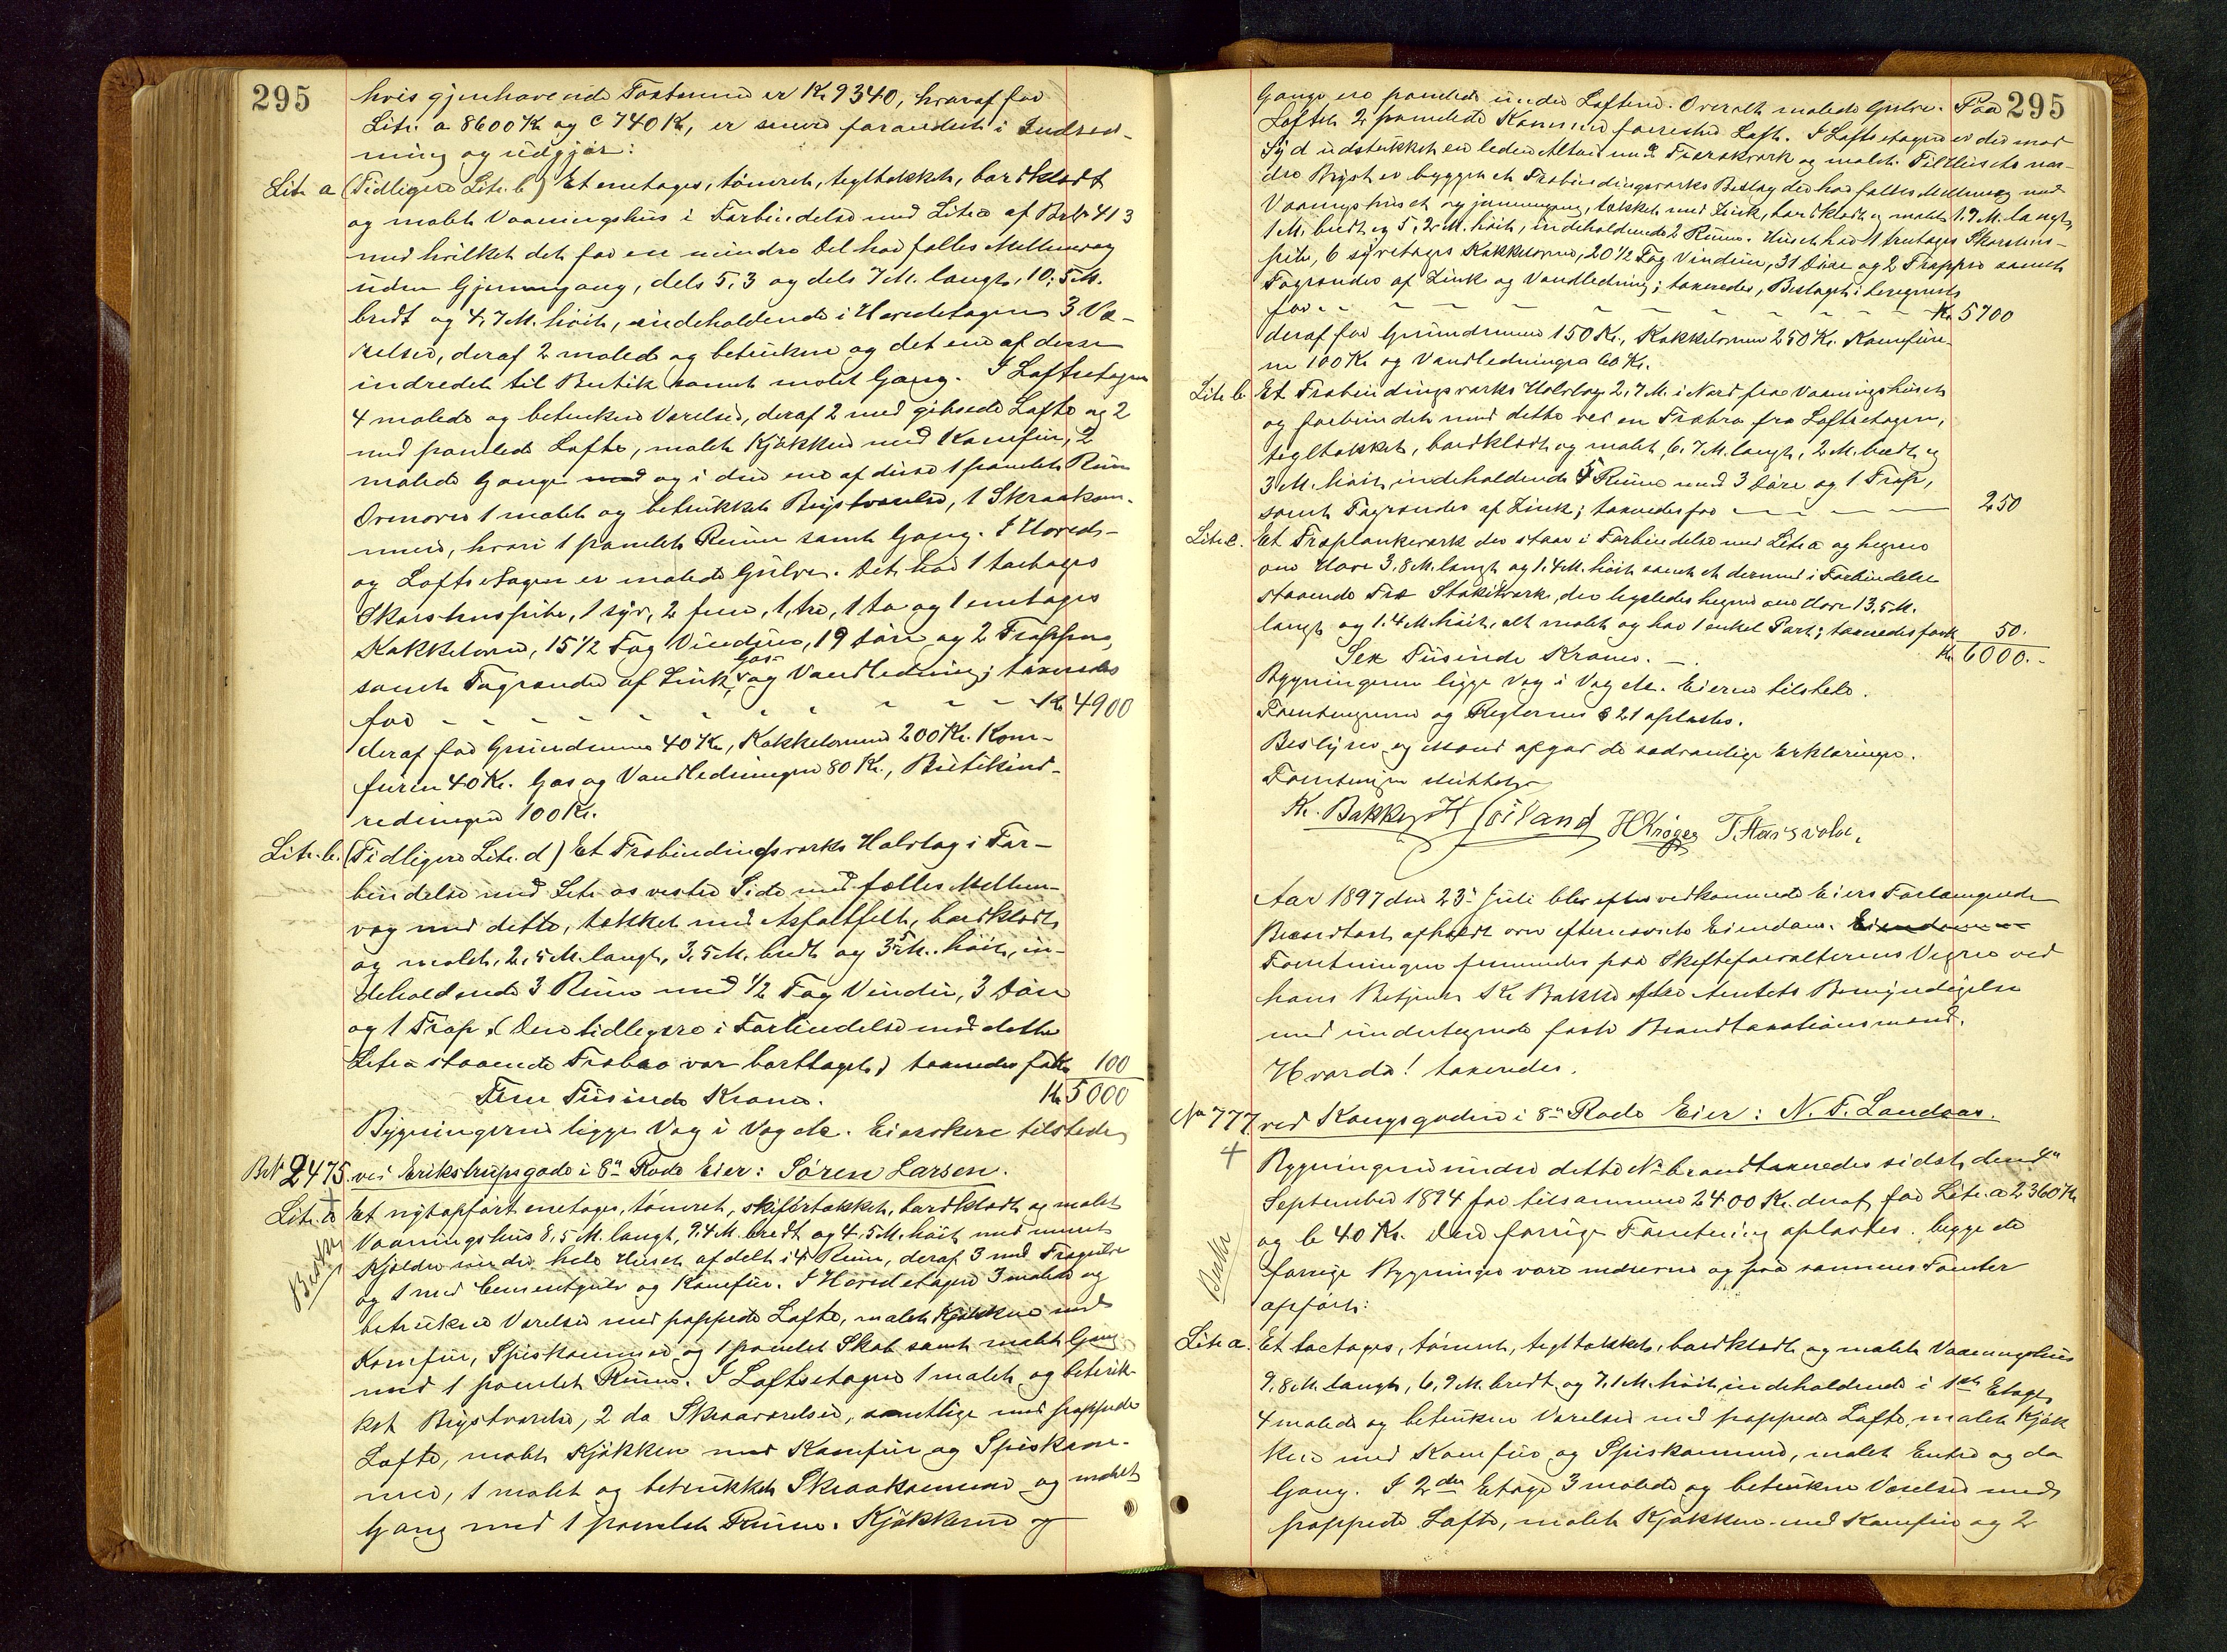 295
hvis gjenhavende Taxtsum er Kr 9340, hvoraf for
Litr. a 8600 Kr og c 740 Kr, er senere forandret i Indred-
ning og udgjør:
Litr a (Tidligere Litr. b) Et enetages, tømret, tegltækket, bordklædt
og malet Vaaningshus i Forbindelse med Litr a af BrNr 413
med hvilket det for en mindre Del har fælles Mellemvæg
uden Gjennemgang, dels 5,3 og dels 7 M. langt, 10,5 M.
bredt og 4,7 M. høit, indeholdende i Hovedetagen 3 Væ-
relser, deraf 2 malede og betrukne og det ene af disse
indredet til Butik samt malet Gang. I Loftsetagen
4 malede og betrukne Værelser, deraf 2 med gibsede Lofte og 2
med panelede Lofte, malet Kjøkken med Komfur, 2
malede Gange med og i den ene af disse 1 panelet Rum
Ovenover 1 malet og betrukket Brystværelse, 1 Skraakam-
mer, hvori 1 panelet Rum samt Gang. I Hoved-
og Loftsetagen er malede Gulve. Det har 1 toetages
Skorstenspibe, 1 syv, 2 fem, 1 tre, 1 to og 1 enetages
Kakkelovne, 15 1/2 Fag Vinduer, 19 Døre og 2 Trapper,
samt Tagrender af Zink, Gas- og Vandledning; taxeredes
for - - - - - - - - Kr 4900
deraf for Grundmuren 40 Kr, Kakkelovnene 200 Kr. Kom-
furen 40 Kr. Gas og Vandledningen 80 Kr., Butikind-
redningen 100 Kr.
Litr. b. (Tidligere Litr. d) Et Træbindingsværks Halvtag i For-
bindelse med Litr as vestre Side med fælles Mellem-
væg med dette, tækket med Asfaltfelt, bordklædt
og malet, 2,5 M. langt, 3,5 M. bredt og 3,5 M. høit, in-
deholdende 3 Rum med 1/2 Fag Vindu, 3 Døre
og 1 Trap. (Den tidligere i Forbindelse med dette
Litra staaende Træbro var borttaget) taxeredes for Kr 100
Fem Tusinde Kroner. Kr 5000
Bygningerne ligge Væg i Væg etc. Eierskere tilstede
BrN 2475 ved Erikstrupsgade i 8de Rode Eier: Søren Larsen.
Litr. a Et nyt opført enetages, tømret, skifertækket, bordklædt og malet
Vaaningshus 8,5 M. langt, 9,4 M. bredt og 4,5 M. høit med muret
Kjælder under hele Huset afdelt i 4 Rum, deraf 3 med Trægulve
og 1 med Cementgulv og Komfur. I Hovedetagen 3 malede og
betrukne Værelser med pappede Lofte, malet Kjøkken med
Komfur, Spiskammer og 1 panelet Skab samt malet Gang
med 1 panelet Rum. I Loftsetagen 1 malet og betruk-
ket Brystværelse, 2 do Skraaværelser, samtlige med pappede
Lofte, malet Kjøkken med Komfur og Spiskam-
mer, 1 malet og betrukket Skraakammer og malet
Gang med 1 panelet Rum. Kjøkkenet og
295
Gange ere panelede under Lofterne. Overalt malede Gulve. Paa
Loftet 2 panelede Kammere forresten Loft. I Loftsetagen er der mod
Syd udstukket en leden Altan med Træværk og malet. Til Husets nor-
dre Bryst er bygget et Træbindingsværks Beslag der har fælles Mellemvæg med
Vaaningshuset og jennemgang, tækket med Zink, bordklædt og malet 1,9 M. langt,
1 M. bredt og 5,2 M. høit, indeholdende 2 Rum. Huset har 1 treetages Skorstens-
pibe, 6 syvetages Kakkelovne, 20 1/2 Fag Vinduer, 31 Døre og 2 Trapper samt
Tagrender af Zink og Vandledning; taxeredes, Beslaget iberegnet
for - - - - - - - - Kr 5700
deraf for Grundmuren 150 Kr., Kakkelovnene 250 Kr. Komfure-
ne 100 Kr og Vandledningen 60 Kr.
Litr b. Et Træbindingsværks Halvtag 2,7 M. i Nord fra Vaaningshuset
og forbundet med dette ved en Træbro fra Loftsetagen,
tegltækket, bordklædt og malet, 6,7 M. langt, 2 M. bredt og
3 M. høit, indeholdende 5 Rum med 3 Døre og 1 Trap,
samt Tagrender af Zink; taxeredes for — — — — 250
Litr. c. Et Træplankeværk der staar i Forbindelse med Litr a og hegner
om Have 3,8 M. langt og 1,4 M. høit samt et dermed i Forbindelse
staaende Træ Stakitværk, der ligeledes hegner om Have 13,5 M.
langt og 1,4 M. høit, alt malet og har 1 enkel Port; taxeredes for Kr 50.
Sex Tusinde Kroner. — Kr 6000.-
Bygningerne ligge Væg i Væg etc. Eieren tilstede.
Taxeringerne og Reglernes § 21 oplæstes.
Bestyrer og Mænd afgav de sædvanlige Erklæringer.
Taxtningen sluttet
Kr. Bakke H Goiland HKrøger T. Haisvold.
Aar 1897 den 23de Juli blev efter vedkommende Eiers Forlangende
Brandtaxt afholdt over efternævnte Eiendom. Eiendommen
Taxtningen fremmedes paa Skifteforvalterens Vegne ved
hans Betjent Kr Bakke efter Amtets Bemyndigelse
med undertegnede faste Brandtaxationsmænd.
Hvorda! taxeredes.
No 777 ved Kongsgaden i 8de Rode Eier: N. T. Landaas.
Bygningerne under dette No brandtaxeredes sidst den
September 1894 for tilsammen 2400 Kr. deraf for Litr. a 2360 Kr
og b 40 Kr. Den forrige Taxtning oplæstes. begge de
forrige Bygninger vare nedrevne og paa sammes Tomter
opført:
Litr a. Et toetages, tømret, tegltækket, bordklædt og malet Vaaningshus
9,8 M. langt, 6,9 M. bredt og 7,1 M. høit, indeholdende i 1ste Etage
4 malede og betrukne Værelser med pappede Lofte, malet Kjøk
ken med Komfur og Spiskammer, malet Entre og do
Gang. I 2den Etage 3 malede og betrukne Værelser med
pappede Lofte, malet Kjøkken med Komfur og 2